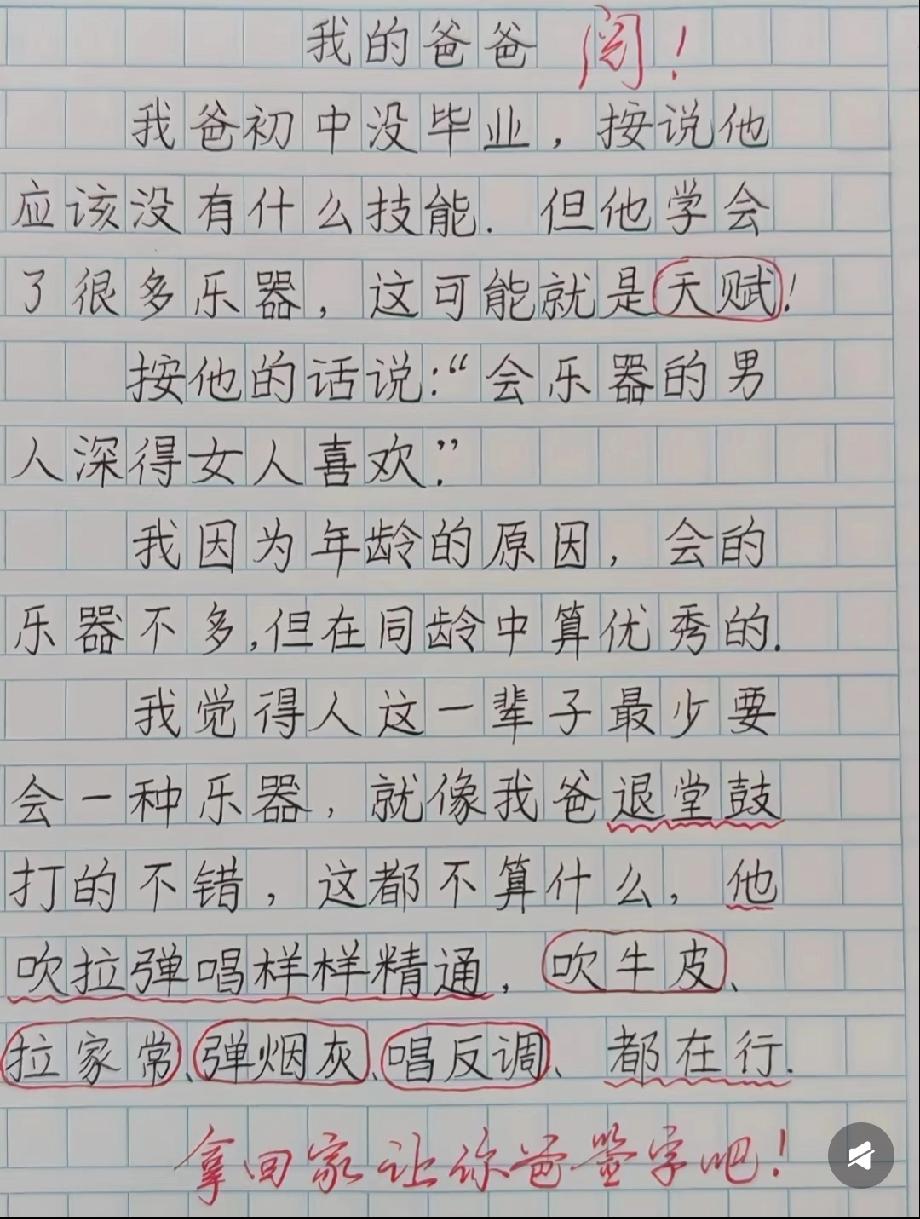 我的爸爸 阅!
我爸初中没毕业，按说他
应该没有什么技能.但他学会
了很多乐器，这可能就是天赋!
按他的话说:“会乐器的男
人深得女人喜欢.”
我因为年龄的原因，会的
乐器不多,但在同龄中算优秀的.
我觉得人这一辈子最少要
会一种乐器，就像我爸退堂鼓
打的不错，这都不算什么，他
吹拉弹唱样样精通，吹牛皮、
拉家常、弹烟灰、唱反调、都在行.
拿回家让你爸签字吧!